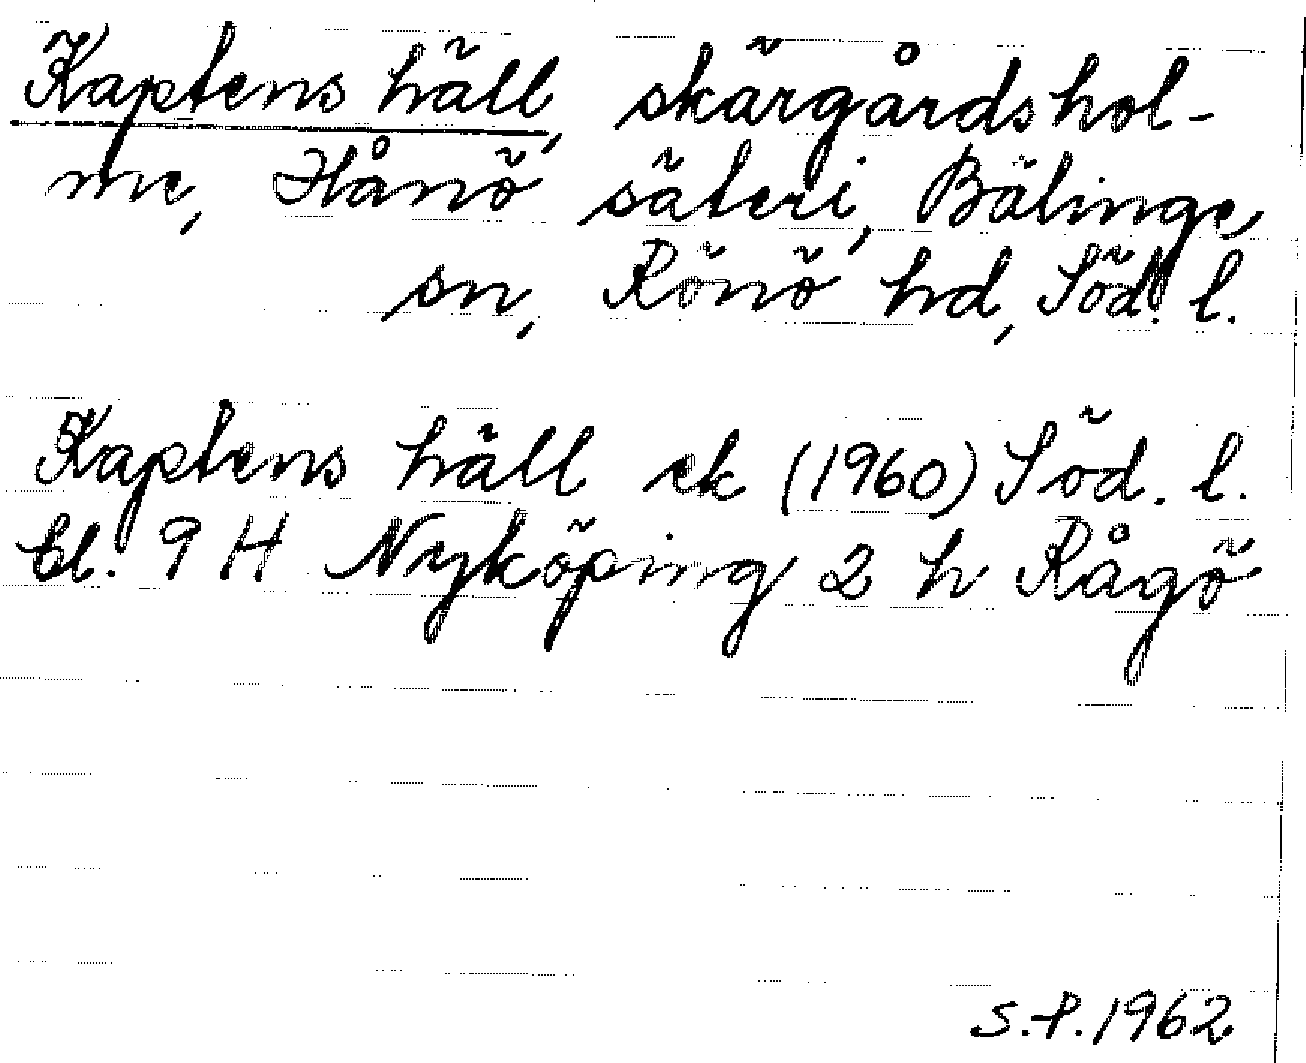 Kaptens häll, skärgårdshol-
me, Hånö säteri, Bälinge
sn, Rönö hd, Söd. l.
Kaptens häll ek (1960) Söd. l.
bl. 9 H Nyköping 2 h Rågö
S.P. 1962